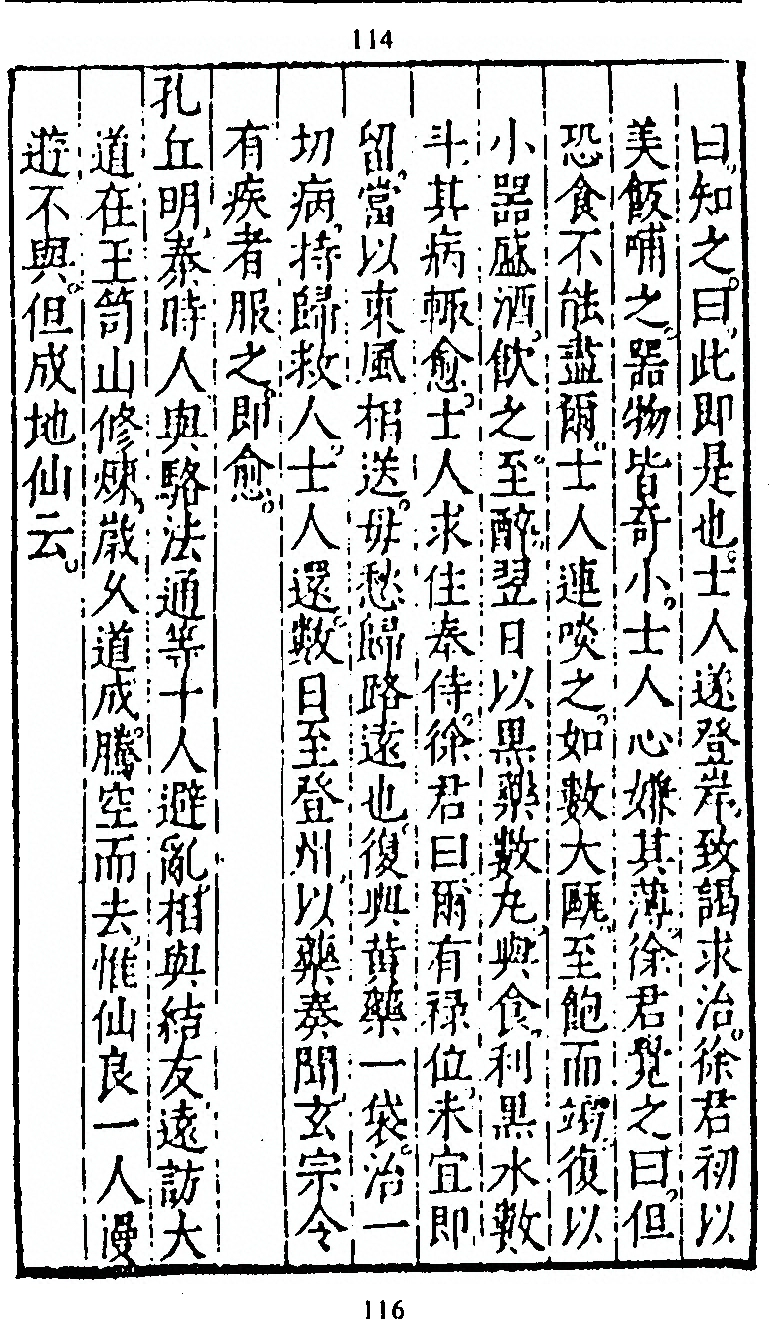 114
曰知之。曰此即是也。士人遂登岸致謁求治。徐君初以
美飯哺之。器物皆奇小。士人心嫌其薄。徐君覺之曰。但
恐食不能盡爾。士人連啖之。如數大甌。至飽而竭。復以
小器盛酒。飲之。至醉。翌日以黑藥數丸。與食。利黑水數
斗。其病輒愈。士人求住奉侍。徐君曰。爾有祿位。未宜即
留。當以東風相送。毋愁歸路遠也。復與黃藥一袋。治一
切病。持歸救人。士人還。數日至登州。以藥奏聞。玄宗令
有疾者服之。即愈。
孔丘明。秦時人。與駱法通等十人避亂。相與結友。遠訪大
道在玉笥山修煉。歲久道成。騰空而去。惟仙良一人漫
遊不與。但成地仙云。
116